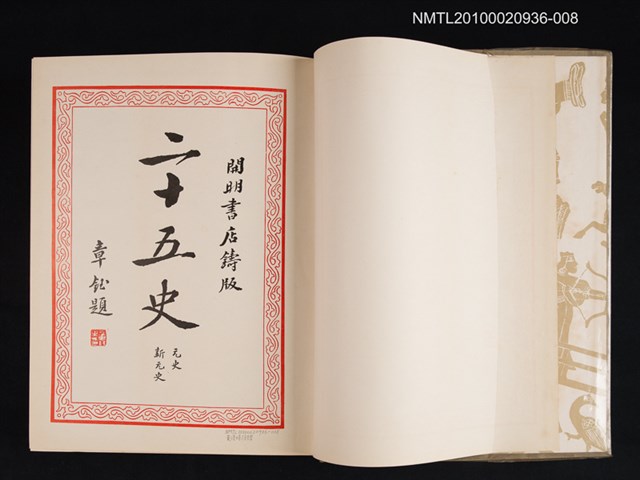 NMTL20100020936-008
開明書店鋳版
二十五史
元史
新元史
章鈺題